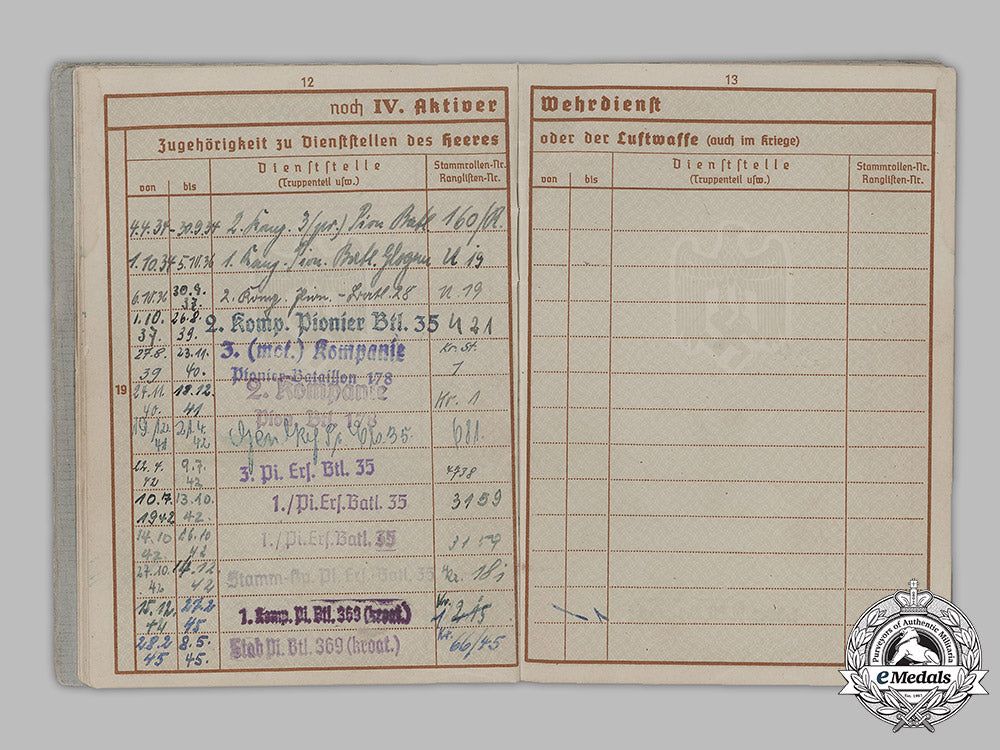 12
noch IV. Aktiver
Zugehörigkeit zu Dienststellen des Heeres
von bis
Dienststelle
(Truppenteil usw.)
Stammrollen-Nr.
Ranglisten-Nr.
4.4.34 - 30.9.34 2. Komp. 3 (pr.) Pion Batl 160/R.
1.10.34 5.10.36 1. Komp. Pion. Batl. Glogau U 19
6.10.36 30.9.37. 2. Komp. Pion.-Batl. 28 U. 19
1.10.37. 26.8.39. 2. Komp. Pionier Btl. 35 U 21
27.8.39 23.11.40. 3. (mot.) Kompanie Kr. St.
Pionier-Bataillon 178 1
19
24.11.40. 18.12.41 2. Kompanie Kr. 1
Pion. Btl. 178
19.12.41 21.4.42 35. 681.
22.4.42 9.7.42 3. Pi. Ers. Btl. 35 4738
10.7.1942 13.10.42. 1./Pi.Ers.Batl. 35 3159
14.10.42. 26.10.42 1./Pi.Ers.Batl. 35 3159
27.10.42 14.12.42 Stamm-Kp. Pi. Ers.-Batl. 35 Kr. 181
15.12.44 27.2.45 1. Komp. Pi. Btl. 369 (kroat.) Kr. 1 245
28.2.45 8.5.45. Stab Pi. Btl. 369 (kroat.) Kr. 66/45
13
Wehrdienst
oder der Luftwaffe (auch im Kriege)
von bis
Dienststelle
(Truppenteil usw.)
Stammrollen-Nr.
Ranglisten-Nr.
Purveyors of Authentic Militaria
eMedals